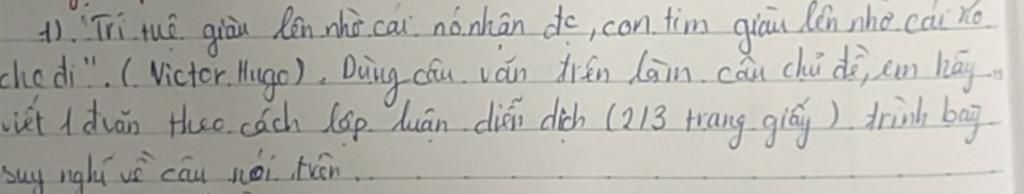 1). "Trí tuệ giàu lên nhờ cái nó nhận đc, con tim giàu lên nhờ cái nó
cho đi". (Victor Hugo). Dùng câu văn trên làm câu chủ đề, em hãy
viết 1 đvăn theo cách lập luận diễn dịch (2/3 trang giấy) trình bày
suy nghĩ về câu nói trên.